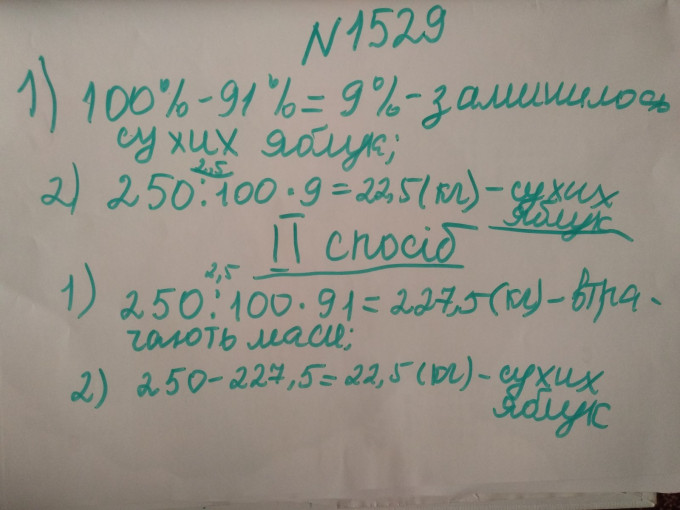 N1529
1) 100%-91%=9%-заминилось
сухих яблук;
2,5
2) 250:100·9=22,5(кг)-сухих
яблук
II спосіб
2,5
1) 250:100·91=227,5(кг)-втра-
чають маси;
2) 250-227,5=22,5(кг)-сухих
яблук